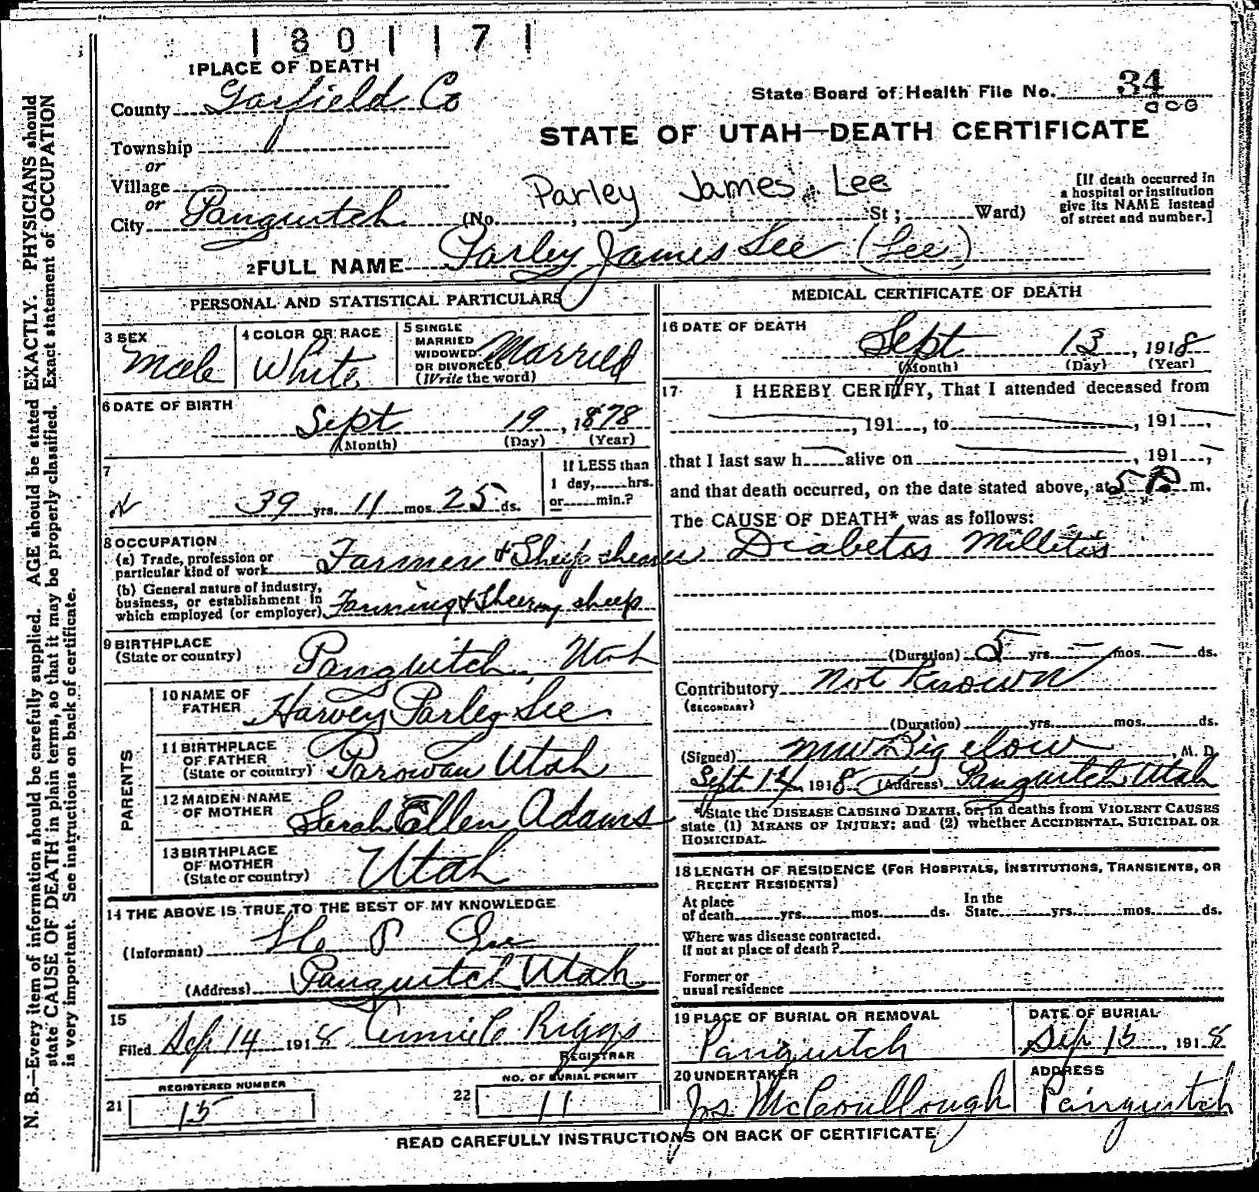 1801171
1 PLACE OF DEATH
County Garfield Co
State Board of Health File No. 34
Township
or
STATE OF UTAH—DEATH CERTIFICATE
Village
or
Parley James Lee
City Panguitch (No. , St ; Ward)
[If death occurred in
a hospital or institution
give its NAME instead
of street and number.]
2 FULL NAME Parley James Lee (Lee)
PERSONAL AND STATISTICAL PARTICULARS
3 SEX
Male
4 COLOR OR RACE
White
5 SINGLE
MARRIED
WIDOWED
OR DIVORCED
(Write the word)
Married
6 DATE OF BIRTH
Sept 19, 1878
(Month) (Day) (Year)
7
39 yrs. 11 mos. 25 ds.
If LESS than
1 day, hrs.
or min.?
8 OCCUPATION
(a) Trade, profession or
particular kind of work Farmer & Sheep shearer
(b) General nature of industry,
business, or establishment in
which employed (or employer) Farming & Sheering sheep
9 BIRTHPLACE
(State or country) Panguitch, Utah
PARENTS
10 NAME OF
FATHER Harvey Parley Lee
11 BIRTHPLACE
OF FATHER
(State or country) Parowan Utah
12 MAIDEN NAME
OF MOTHER Sarah Ellen Adams
13 BIRTHPLACE
OF MOTHER
(State or country) Utah
14 THE ABOVE IS TRUE TO THE BEST OF MY KNOWLEDGE
(Informant) H P Lee
(Address) Panguitch Utah
15
Filed Sep 14 1918 Annie C Riggs
REGISTRAR
REGISTERED NUMBER
21 15
NO. OF BURIAL PERMIT
22 11
MEDICAL CERTIFICATE OF DEATH
16 DATE OF DEATH
Sept 13, 1918
(Month) (Day) (Year)
17 I HEREBY CERTIFY, That I attended deceased from
, 191 , to , 191 ,
that I last saw h alive on , 191 ,
and that death occurred, on the date stated above, at 5 P. m.
The CAUSE OF DEATH* was as follows:
Diabetos Millitis
(Duration) 5 yrs. — mos. — ds.
Contributory Not Known
(SECONDARY)
(Duration) yrs. mos. ds.
(Signed) M W Bigelow, M. D.
Sept 14, 1918 (Address) Panguitch Utah
*State the DISEASE CAUSING DEATH, or, in deaths from VIOLENT CAUSES
state (1) MEANS OF INJURY; and (2) whether ACCIDENTAL, SUICIDAL OR
HOMICIDAL.
18 LENGTH OF RESIDENCE (FOR HOSPITALS, INSTITUTIONS, TRANSIENTS, OR
RECENT RESIDENTS)
At place
of death yrs. mos. ds.
In the
State yrs. mos. ds.
Where was disease contracted.
If not at place of death?
Former or
usual residence
19 PLACE OF BURIAL OR REMOVAL
Panguitch
DATE OF BURIAL
Sep 15, 1918
20 UNDERTAKER
Jos McCoullough
ADDRESS
Painguitch
READ CAREFULLY INSTRUCTIONS ON BACK OF CERTIFICATE
N. B.—Every item of information should be carefully supplied. AGE should be stated EXACTLY. PHYSICIANS should
state CAUSE OF DEATH in plain terms, so that it may be properly classified. Exact statement of OCCUPATION
is very important. See instructions on back of certificate.